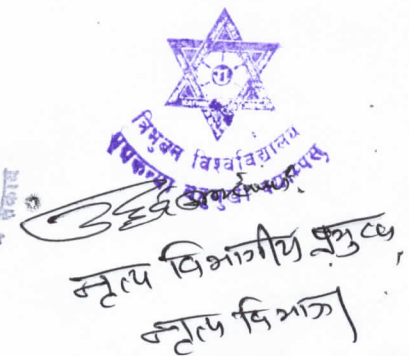 त्रिभुवन विश्वविद्यालय
पद्मकन्या बहुमुखी क्याम्पस
नृत्य विभागीय प्रमुख,
नृत्य विभाग